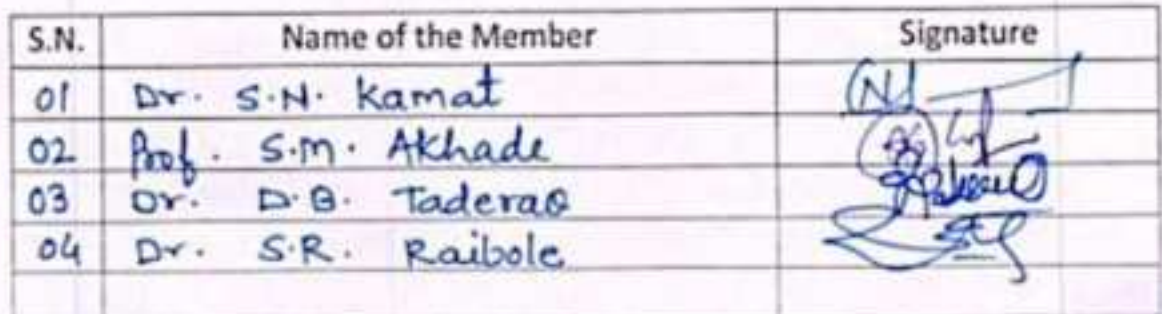 S.N. Name of the Member Signature
01 Dr. S.N. Kamat
02 Prof. S.M. Akhade
03 Dr. D.B. Taderao
04 Dr. S.R. Raibole